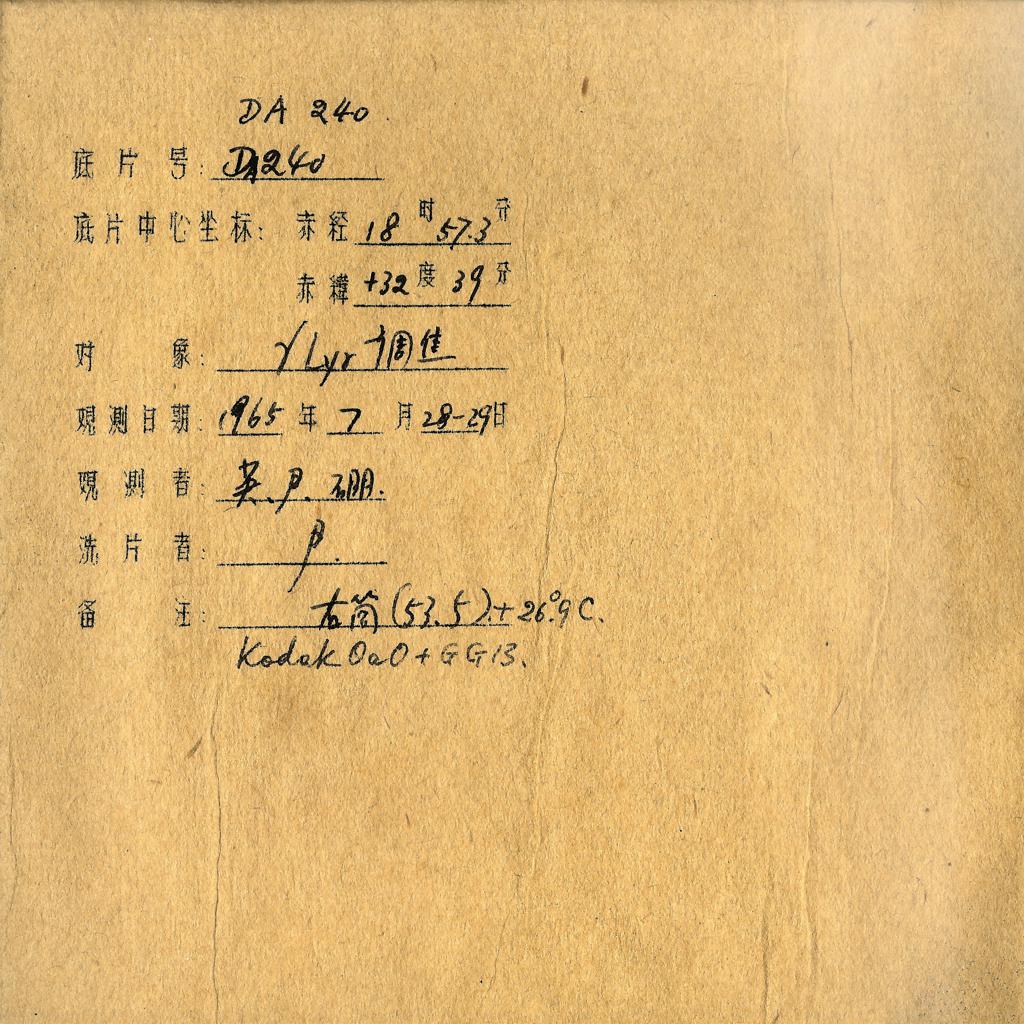 DA 240
底片号: DA240
底片中心坐标: 赤经 18 时 57.3 分
赤緯 +32 度 39 分
对 象: γ Lyr 調焦
观测日期: 1965 年 7 月 28-29日
观测者: 英. 尹. 硼.
洗片者: 尹.
备 注: 右筒(53.5)+26°.9C.
Kodak OaO+GG13.